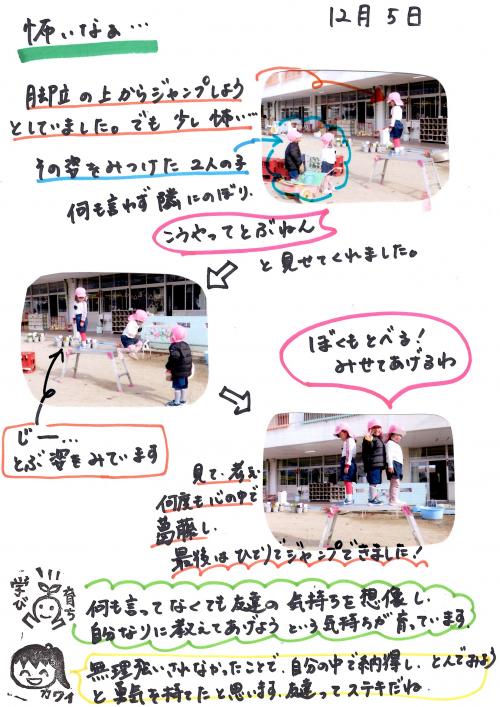 12月5日
怖いなぁ…
脚立の上からジャンプしよう
としていました。でも少し怖い…
その姿をみつけた2人の子
何も言わず隣にのぼり、
こうやってとぶねん
と見せてくれました。
じー…
とぶ姿をみています
ぼくもとべる!
みせてあげるわ
見て、考え
何度も心の中で
葛藤し、
最後はひとりでジャンプできました!
学び
育ち
何も言ってなくても友達の気持ちを想像し、
自分なりに教えてあげようという気持ちが育っています。
無理強いされなかったことで、自分の中で納得し、とんでみよう
と勇気を持てたと思います。友達ってステキだね。
カワイ